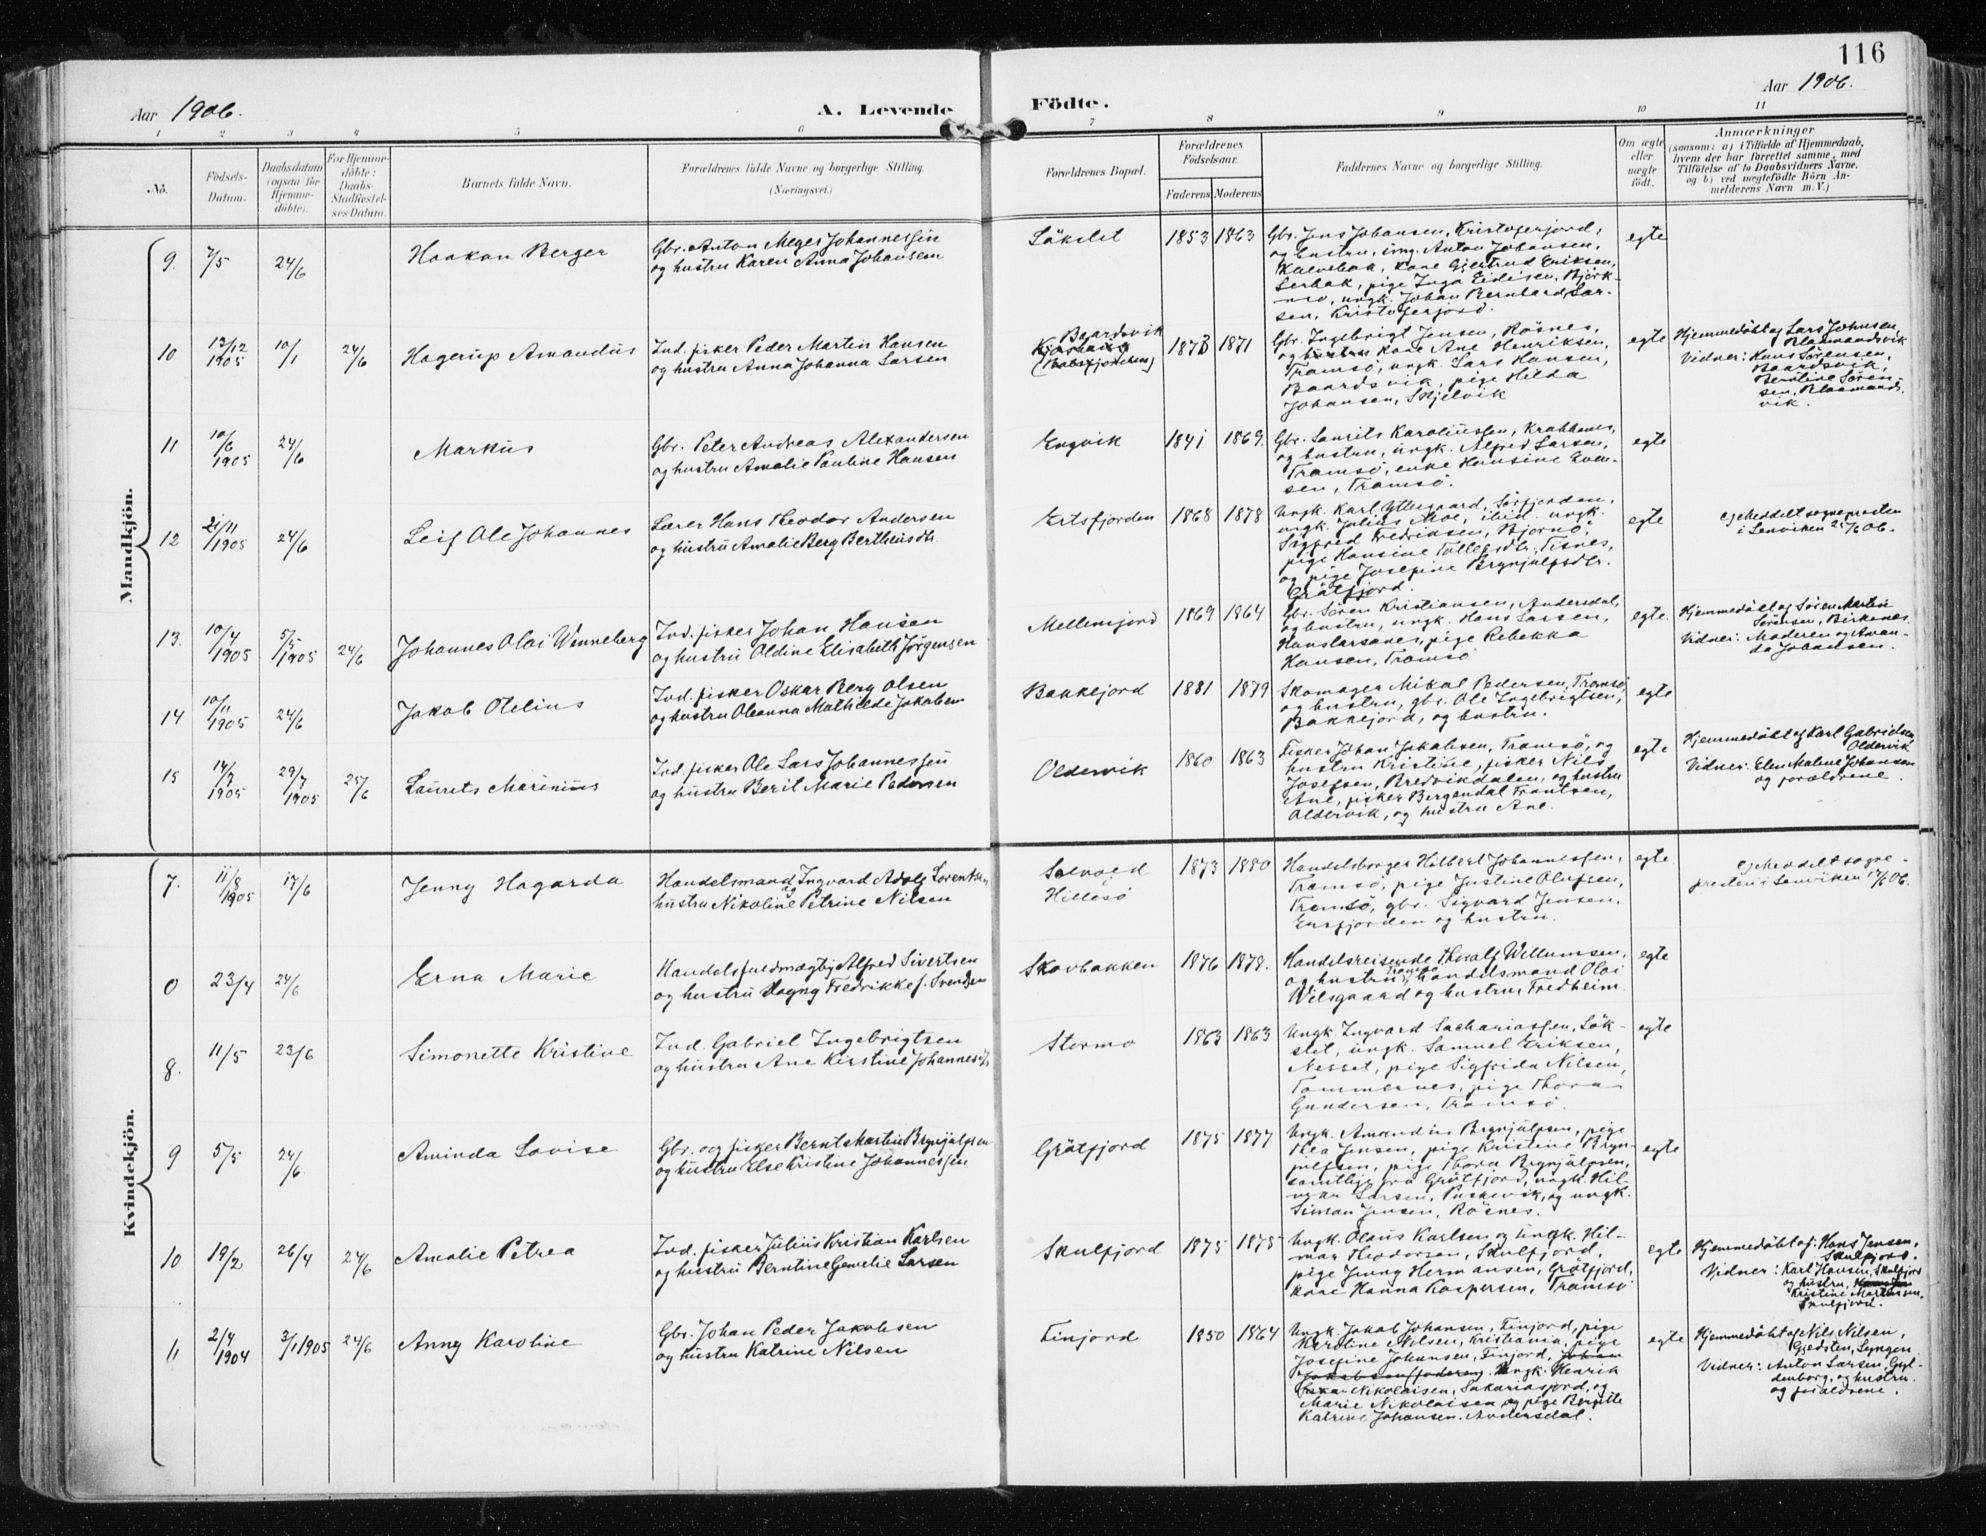 116
Aar 1906.
A. Levende Födte.
Aar 1906.
1 2 3 4 5 6 7 8 9 10 11
No.
Födsels-
Datum.
Daabsdatum
(ogsaa for
Hjemme-
döbte).
For Hjemme-
döbte:
Daabs-
Stadfæstel-
ses Datum.
Barnets fulde Navn.
Forældrenes fulde Navne og borgerlige Stilling
(Næringsvei.)
Forældrenes Bopæl.
Forældrenes
Födselsaar.
Faderens Moderens
Faddernes Navne og borgerlige Stilling.
Om ægte
eller
uægte
födt.
Anmærkninger
(saasom: a) i Tilfælde af Hjemmedaab,
hvem der har forrettet samme, med
Tilföielse af to Daabsvidners Navne,
og b) ved uægtefödte Börn An-
melderens Navn m. V.)
Mandkjön.
9. 7/5 24/6 Haakon Berger
Gbr. Anton Meyer Johannessen
og hustru Karen Anna Johansen
Sökslet 1853 1863
Gbr. Jens Johansen, Kristoferjord,
og hustru, ung. Anton Johansen,
Kalvebaa, kone Gjertrud Eriksen,
pige Inga Eidisen, Bjórk-
ungk. Johan Bernhard Lar-
sen, Kristoferjord.
egte
10 13/12 1905 10/1 24/6 Hagerup Amandus
Ind. fisker Peder Martin Hansen
og hustru Anna Johanna Larsen
Baardsvik
1873 1871
Gbr. Ingebrigt Jensen, Rösnes,
og hustru Kone Ane Henriksen,
Tromsö, ungk. Lars Hansen,
Baardsvik, pige Hilda
Johansen, Skjelvik
egte
Hjemmedöbt af Lars Johnsen,
Blaamandsvik
Vidner: Hans Sörensen,
Baardsvik,
Berntine Sören-
sen, Blaamands-
vik.
11 10/6 1905 24/6 Markus
Gbr. Peter Andreas Alexandersen
og hustru Amalie Pauline Hansen
Engvik 1841 1869.
Gbr. Laurits Karoliussen, Krabbenes,
og hustru, ungk. Alfred Larsen,
Tromsö, enke Hansine Even-
sen, Tromsö.
egte
12 21/11 1905 24/6 Leif Ole Johannes
Lærer Hans Theodor Andersen
og hustru Amalie Berg Bertheusdtr.
Ertsfjorden 1868 1878
ungk. Karl Yttergaard, Sörfjorden,
ungk. Julius Moe, ibid. ungk.
Sigfred Fredriksen, Bjornö,
pige Hansine Tollefsdtr. Tisnes,
og pige Josefine Brynjulfsdtr.
Grötfjord.
egte
Meddelt sogneprsten
i Lenviken 25/6 06.
13. 10/4 1905 5/5 1905 24/6 Johannes Olai Wenneberg
Ind. fisker Johan Hansen
og hustru Oldine Elisabeth Jörgensen
Mellemfjord 1869 1864
Gbr. Sören Kristiansen, Andersdal,
og hustru, ungk. Hans Larsen,
Hanslarsanes, pige Rebekka
Hansen, Tromsö
egte.
Hjemmedöbt af Sören Martin
Sörensen, Birkenes
Vidner: Moderen og Aman-
da Johansen.
14 10/11 1905 24/6 Jakob Otelius
Ind. fisker Oskar Berg Olsen
og hustru Oleanna Mathilde Jakobsen
Bakkejord 1881 1879
Skomager Mikal Pedersen, Tromsö,
og hustru, gbr. Ole Ingebrigtsen,
Bakkejord, og hustru.
egte
15 14/7 1905 29/7 1905 25/6 Laurits Marinius
Ind. fisker Ole Lars Johannessen
og hustru Berit Marie Pedersen
Oldervik 1860 1863
Fisker Johan Jakobsen, Tromsö, og
hustru Kristine, fisker Nils
Josefsen, Bredvikdalen, og hustru
Ane, fisker Bergendal Frantsen,
Oldervik, og hustru Ane.
egte
Hjemmedöbt af Karl Gabrielsen,
Oldervik
Vidner: Elen Malene Johansen
og forældrene.
Kvindekjön.
7. 11/8 1905 17/6 Jenny Hagarda
Handelsmand Ingvard Adolf Lorentsen
og
hustru Nikoline Petrine Nilsen
Solvoed
Hillesö
1873 1880
Handelsborger Hilbert Johannessen,
Tromsö, pige Justine Olufsen,
Tromsö, gbr. Sigvard Jensen,
Ersfjorden og hustru.
egte
Meddelt sogne-
presten i Lenviken 17/6 06.
0 23/4 24/6 Erna Marie
Handelsfuldmægtig Alfred Sivertsen
og hustru Dagny Fredrikke f. Svendsen
Skovbakken 1876 1878.
Handelsreisende Thoralf Willumsen,
og hustru, Tromsö, handelsmand Olai
Wilsgaard og hustru, Fredheim.
egte
8. 11/5 23/6 Simonette Kristine
Ind. Gabriel Ingebrigtsen
og hustru Ane Kirstine Johannesd/r
Stormo 1863 1863
Ungk. Ingvard Sachariassen, Sök-
slet, ungk. Samuel Eriksen,
Nesset, pige Sigfrida Nilsen,
Tommernes, pige Thora
Gundersen, Tromsö.
egte
9 5/5 24/6 Aminda Lovise
Gbr. og fisker Bernt Martin Brynjulfsen
og hustru Else Kristine Johannessen
Grötfjord 1875 1877
Ungk. Amandus Brynjulfsen, pige
Rea Jensen, pige Kristine Bryn-
julfsen, pige Thora Brynjulfsen,
samtlige fra Grötfjord, ungk. Hil-
mar Larsen, og ungk.
Simon Jensen, Rösnes.
egte
10 19/2 26/4 24/6 Amalie Petrea
Ind. fisker Julius Kristian Karlsen
og hustru Berntine Gemelie Larsen
Skulfjord 1875 1875
Ungk. Olaus Karlsen og ungk. Hil-
mar Theodorsen, Skulfjord,
pige Jenny Hermansen, Grötfjord,
kone Hanna Kaspersen, Tromsö
egte
Hjemmedöbt af: Hans Jensen,
Skulfjord.
Vidner: Karl Hansen, Skulfjord
og hustru,
Kristine Mortensen,
Skulfjord.
11 2/4 1904 3/1 1905 24/6 Anny Karoline
Gbr. Johan Peder Jakobsen
og hustru Katrine Nilsen
Finjord 1850 1864
Ungk. Jakob Johansen, Finjord, pige
Karoline Nilsen, Kristiania, pige
Josefine Johansen, Finjord,
Ungk. Henrik
Oskar Nikolaisen, Sakariasjord, og
Marie Nikolaisen og pige Bergitte
Katrine Johansen, Andersdal.
egte
Hjemmedöbt af Nils Nilsen,
Gjedsten, Lyngen
Vidner: Anton Larsen, Gyl-
denborg, og hustru
og forældrene.